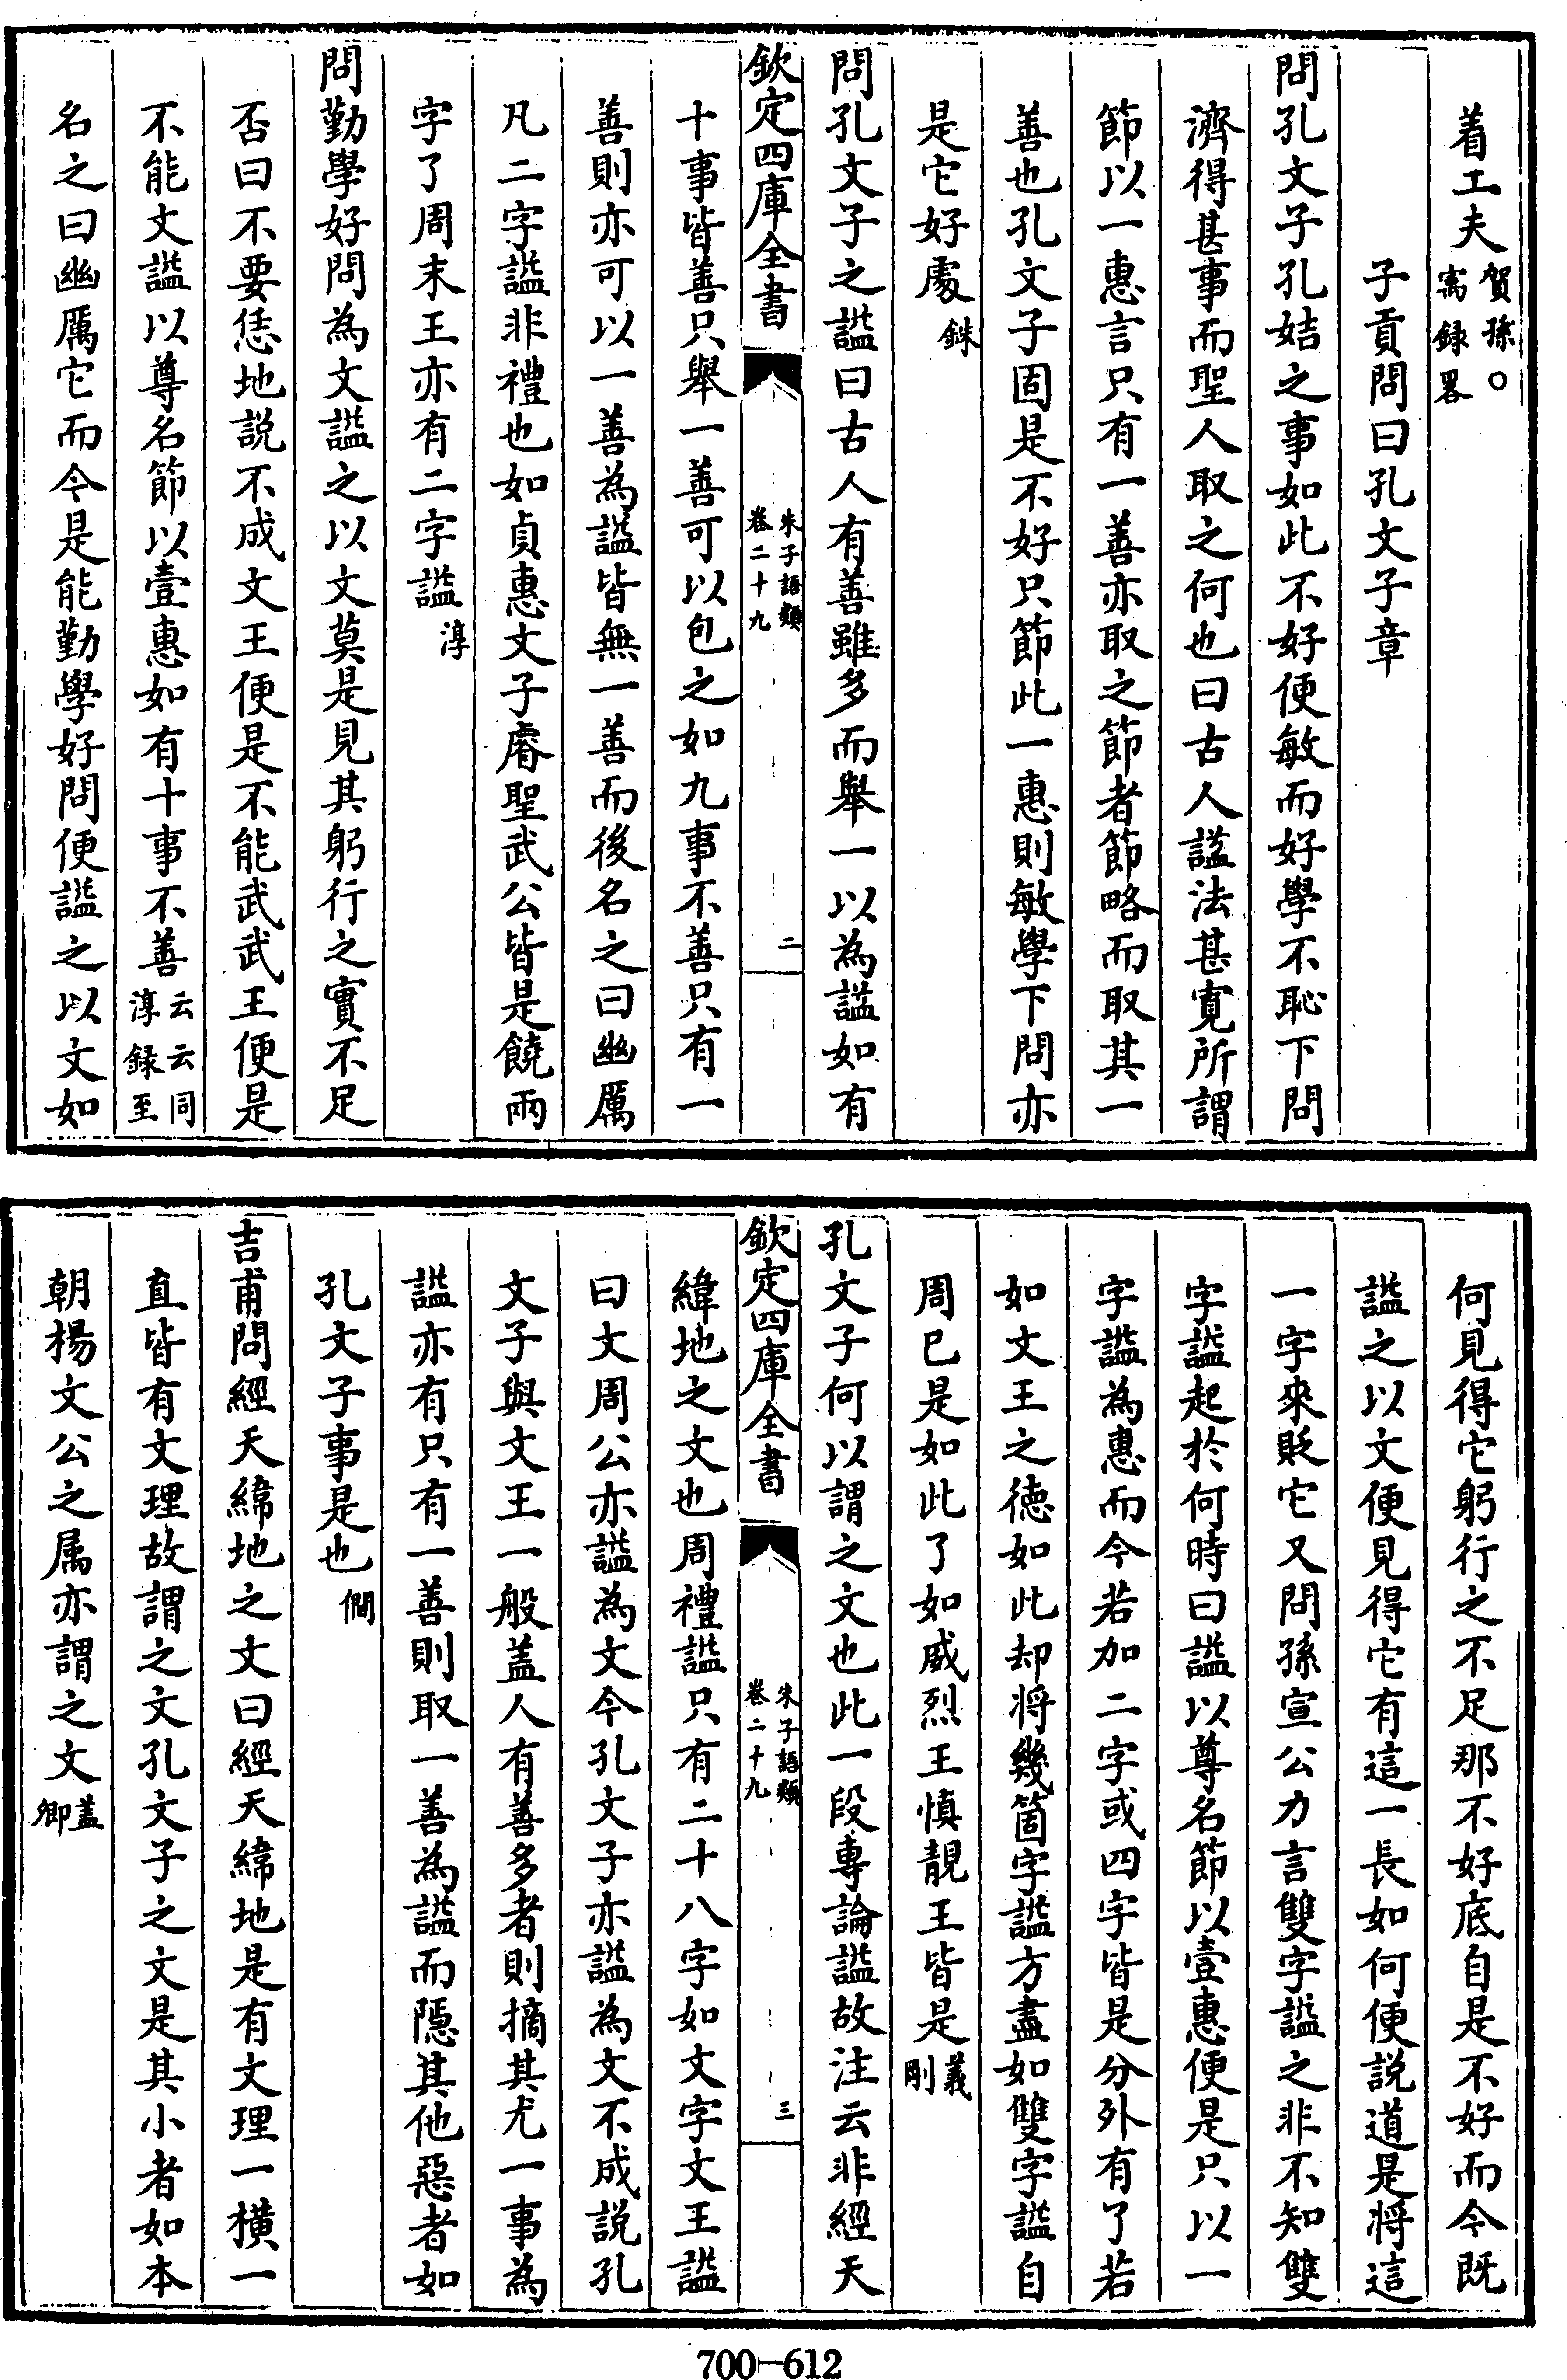 着工夫賀孫○寓録畧
子貢問曰孔文子章
問孔文子孔姞之事如此不好便敏而好學不恥下問
濟得甚事而聖人取之何也曰古人諡法甚寛所謂
節以一惠言只有一善亦取之節者節略而取其一
善也孔文子固是不好只節此一惠則敏學下問亦
是它好處銖
問孔文子之諡曰古人有善雖多而舉一以為諡如有
欽定四庫全書
朱子語類
卷二十九
二
十事皆善只舉一善可以包之如九事不善只有一
善則亦可以一善為諡皆無一善而後名之曰幽厲
凡二字諡非禮也如貞惠文子睿聖武公皆是饒兩
字了周末王亦有二字諡淳
問勤學好問為文諡之以文莫是見其躬行之實不足
否曰不要恁地説不成文王便是不能武武王便是
不能文諡以尊名節以壹惠如有十事不善云云同淳録至
名之曰幽厲它而今是能勤學好問便諡之以文如
何見得它躬行之不足那不好底自是不好而今既
諡之以文便見得它有這一長如何便説道是將這
一字來貶它又問孫宣公力言雙字諡之非不知雙
字諡起於何時曰諡以尊名節以壹惠便是只以一
字諡為惠而今若加二字或四字皆是分外有了若
如文王之徳如此却将幾箇字諡方盡如雙字諡自
周已是如此了如威烈王慎靚王皆是義剛
孔文子何以謂之文也此一段專論諡故注云非經天
欽定四庫全書
朱子語類
卷二十九
三
緯地之文也周禮諡只有二十八字如文字文王諡
曰文周公亦諡為文今孔文子亦諡為文不成説孔
文子與文王一般盖人有善多者則摘其尤一事為
諡亦有只有一善則取一善為諡而隠其他惡者如
孔文子事是也僩
吉甫問經天緯地之文曰經天緯地是有文理一橫一
直皆有文理故謂之文孔文子之文是其小者如本
朝楊文公之属亦謂之文盖卿
700-612